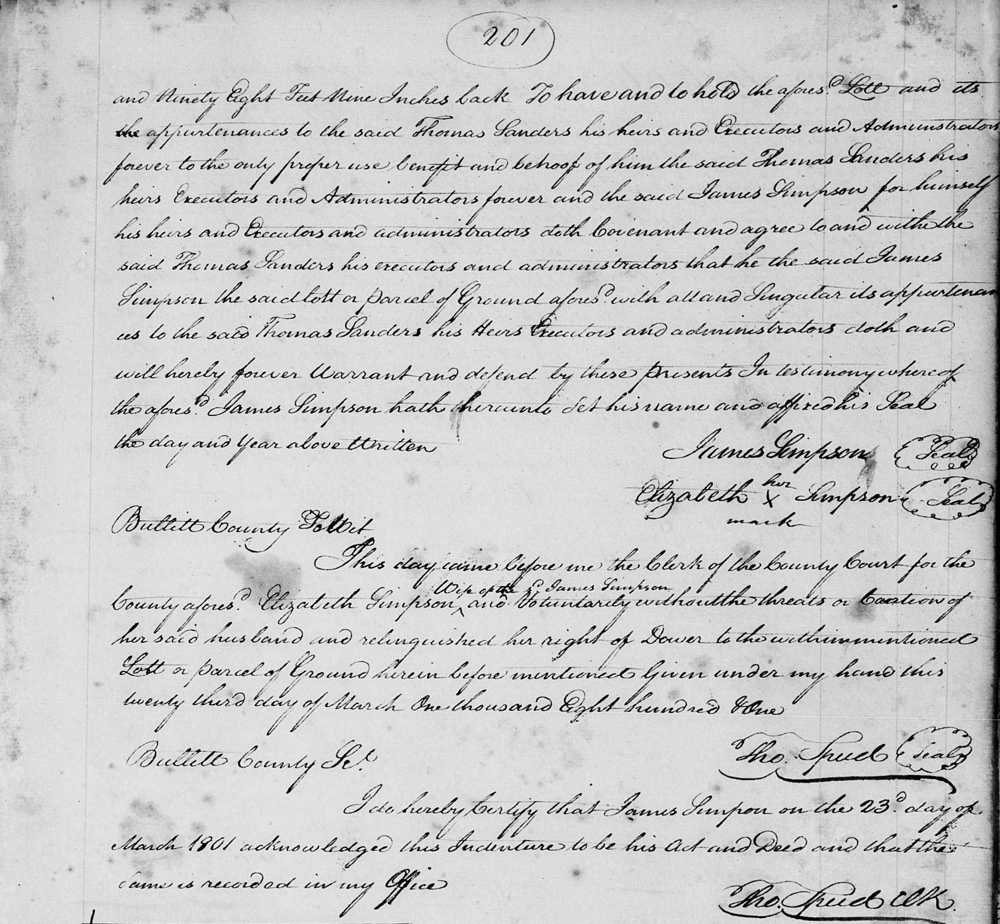 201
and Ninety Eight Feet Nine Inches back To have and to hold the afores.d Lott and its
the appurtenances to the said Thomas Sanders his heirs and Executors and Administrators
forever to the only proper use benefit and behoof of him the said Thomas Sanders his
heirs Executors and Administrators forever and the said James Simpson for himself
his heirs and Executors and administrators doth Covenant and agree to and withe the
said Thomas Sanders his executors and administrators that he the said James
Simpson the said lott or parcel of Ground afores.d with all and Singular its appurtenan
ces to the said Thomas Sanders his Heirs Executors and administrators doth and
will hereby forever Warrant and defend by these presents In testimony where of
the afores.d James Simpson hath thereunto Set his name and affixed his Seal
the day and Year above Written
James Simpson Seal
her
Elizabeth X Simpson Seal
mark
Bullitt County To Wit
This day came before me the Clerk of the County Court for the
Wife of the s.d James Simpson
County afores.d Elizabeth Simpson ^ and Voluntarily without the threats or Coertion of
her said husband and relinquished her right of Dower to the within mentioned
Lott or parcel of Ground herein before mentioned Given under my hand this
twenty third day of March One thousand Eight hundred & One
Tho. Speed Seal
Bullitt County Sc.t
I do hereby Certify that James Simpon on the 23.d day of
March 1801 acknowledged this Indenture to be his Act and Deed and that the
same is recorded in my Office
Tho. Speed Clk.